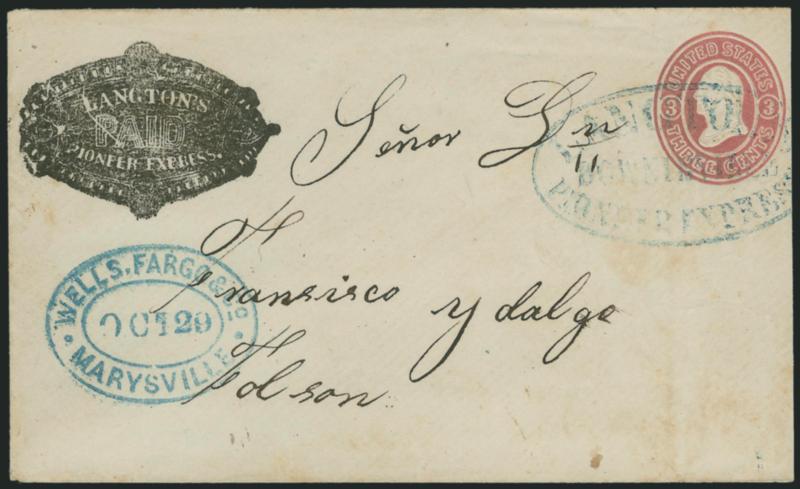 LANGTON'S
PAID
PIONEER EXPRESS.
UNITED STATES
3 3
THREE CENTS
LANGTON'S
DOWNIEVILLE
PIONEER EXPRESS
Señor Dn
Fransisco ydalgo
Folson
WELLS, FARGO & Co
OCT 29
MARYSVILLE